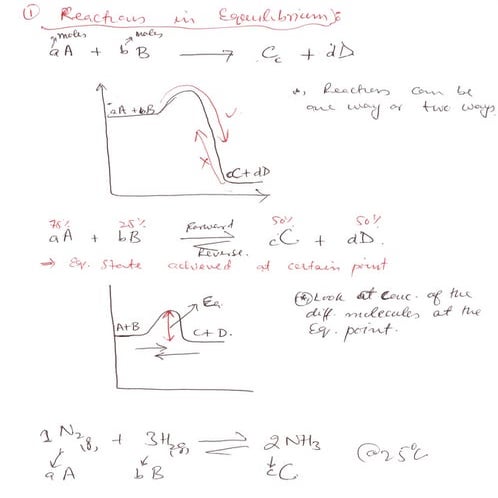 ① Reactions in Equilibrium:
moles moles
aA + bB → Cc + dD
*, Reactions can be
one way or two ways
aA + bB
cC + dD
75% 25% Forward 50% 50%
aA + bB ⇌ cC + dD.
Reverse.
→ Eq. State achieved at certain point
Ea
(*) Look at conc. of the
diff. molecules at the
Eq. point.
A+B
C + D.
1 N2(g) + 3H2(g) ⇌ 2NH3
@25°C
aA bB cC